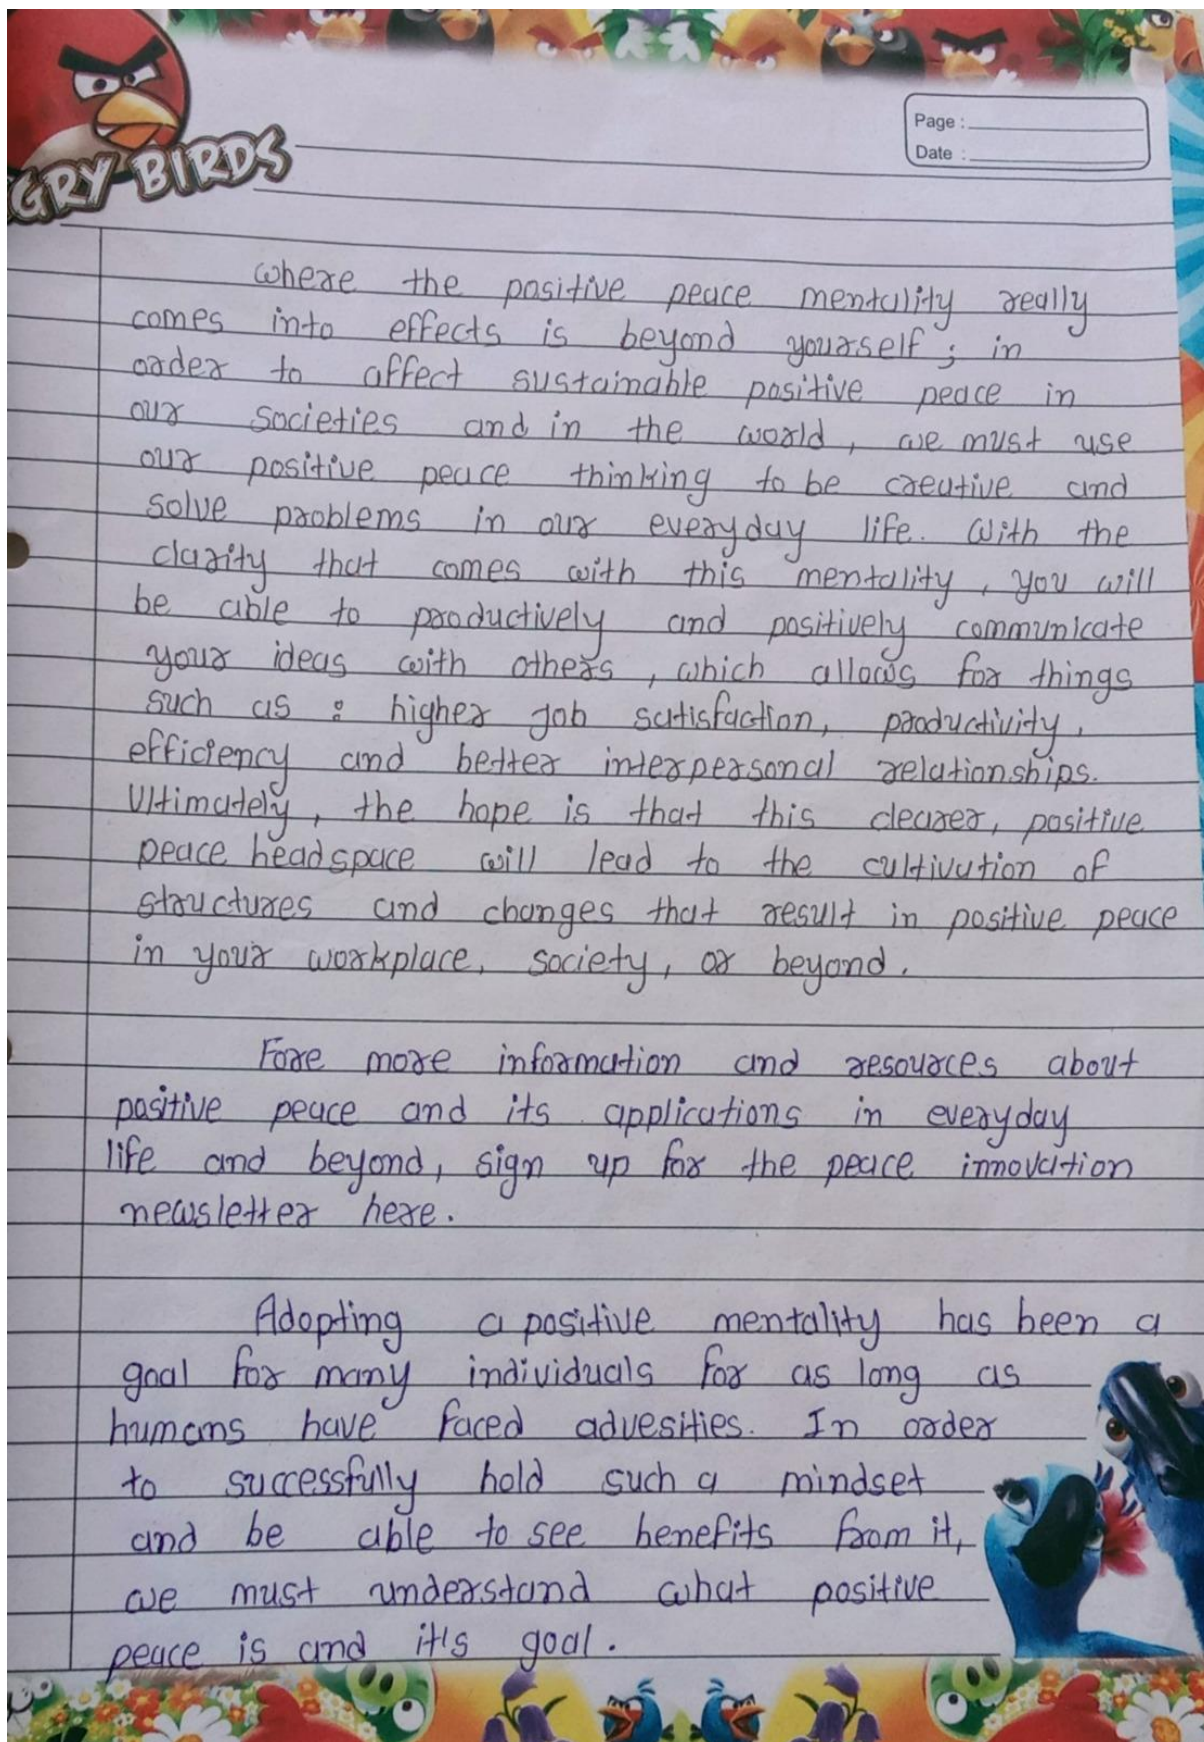 GRY BIRDS
Page :
Date :
where the positive peace mentality really
comes into effects is beyond yourself ; in
order to affect sustainable positive peace in
our societies and in the world, we must use
our positive peace thinking to be creative and
solve problems in our everyday life. With the
clarity that comes with this mentality, you will
be able to productively and positively communicate
your ideas with others, which allows for things
such as : higher Job satisfaction, productivity,
efficiency and better interpersonal relationships.
Ultimately, the hope is that this clearer, positive
peace headspace will lead to the cultivation of
structures and changes that result in positive peace
in your workplace, society, or beyond.
Fore more information and resources about
positive peace and its applications in everyday
life and beyond, sign up for the peace innovation
newsletter here.
Adopting a positive mentality has been a
goal for many individuals for as long as
humans have faced advesities. In order
to successfully hold such a mindset
and be able to see benefits from it,
we must understand what positive
peace is and it's goal.